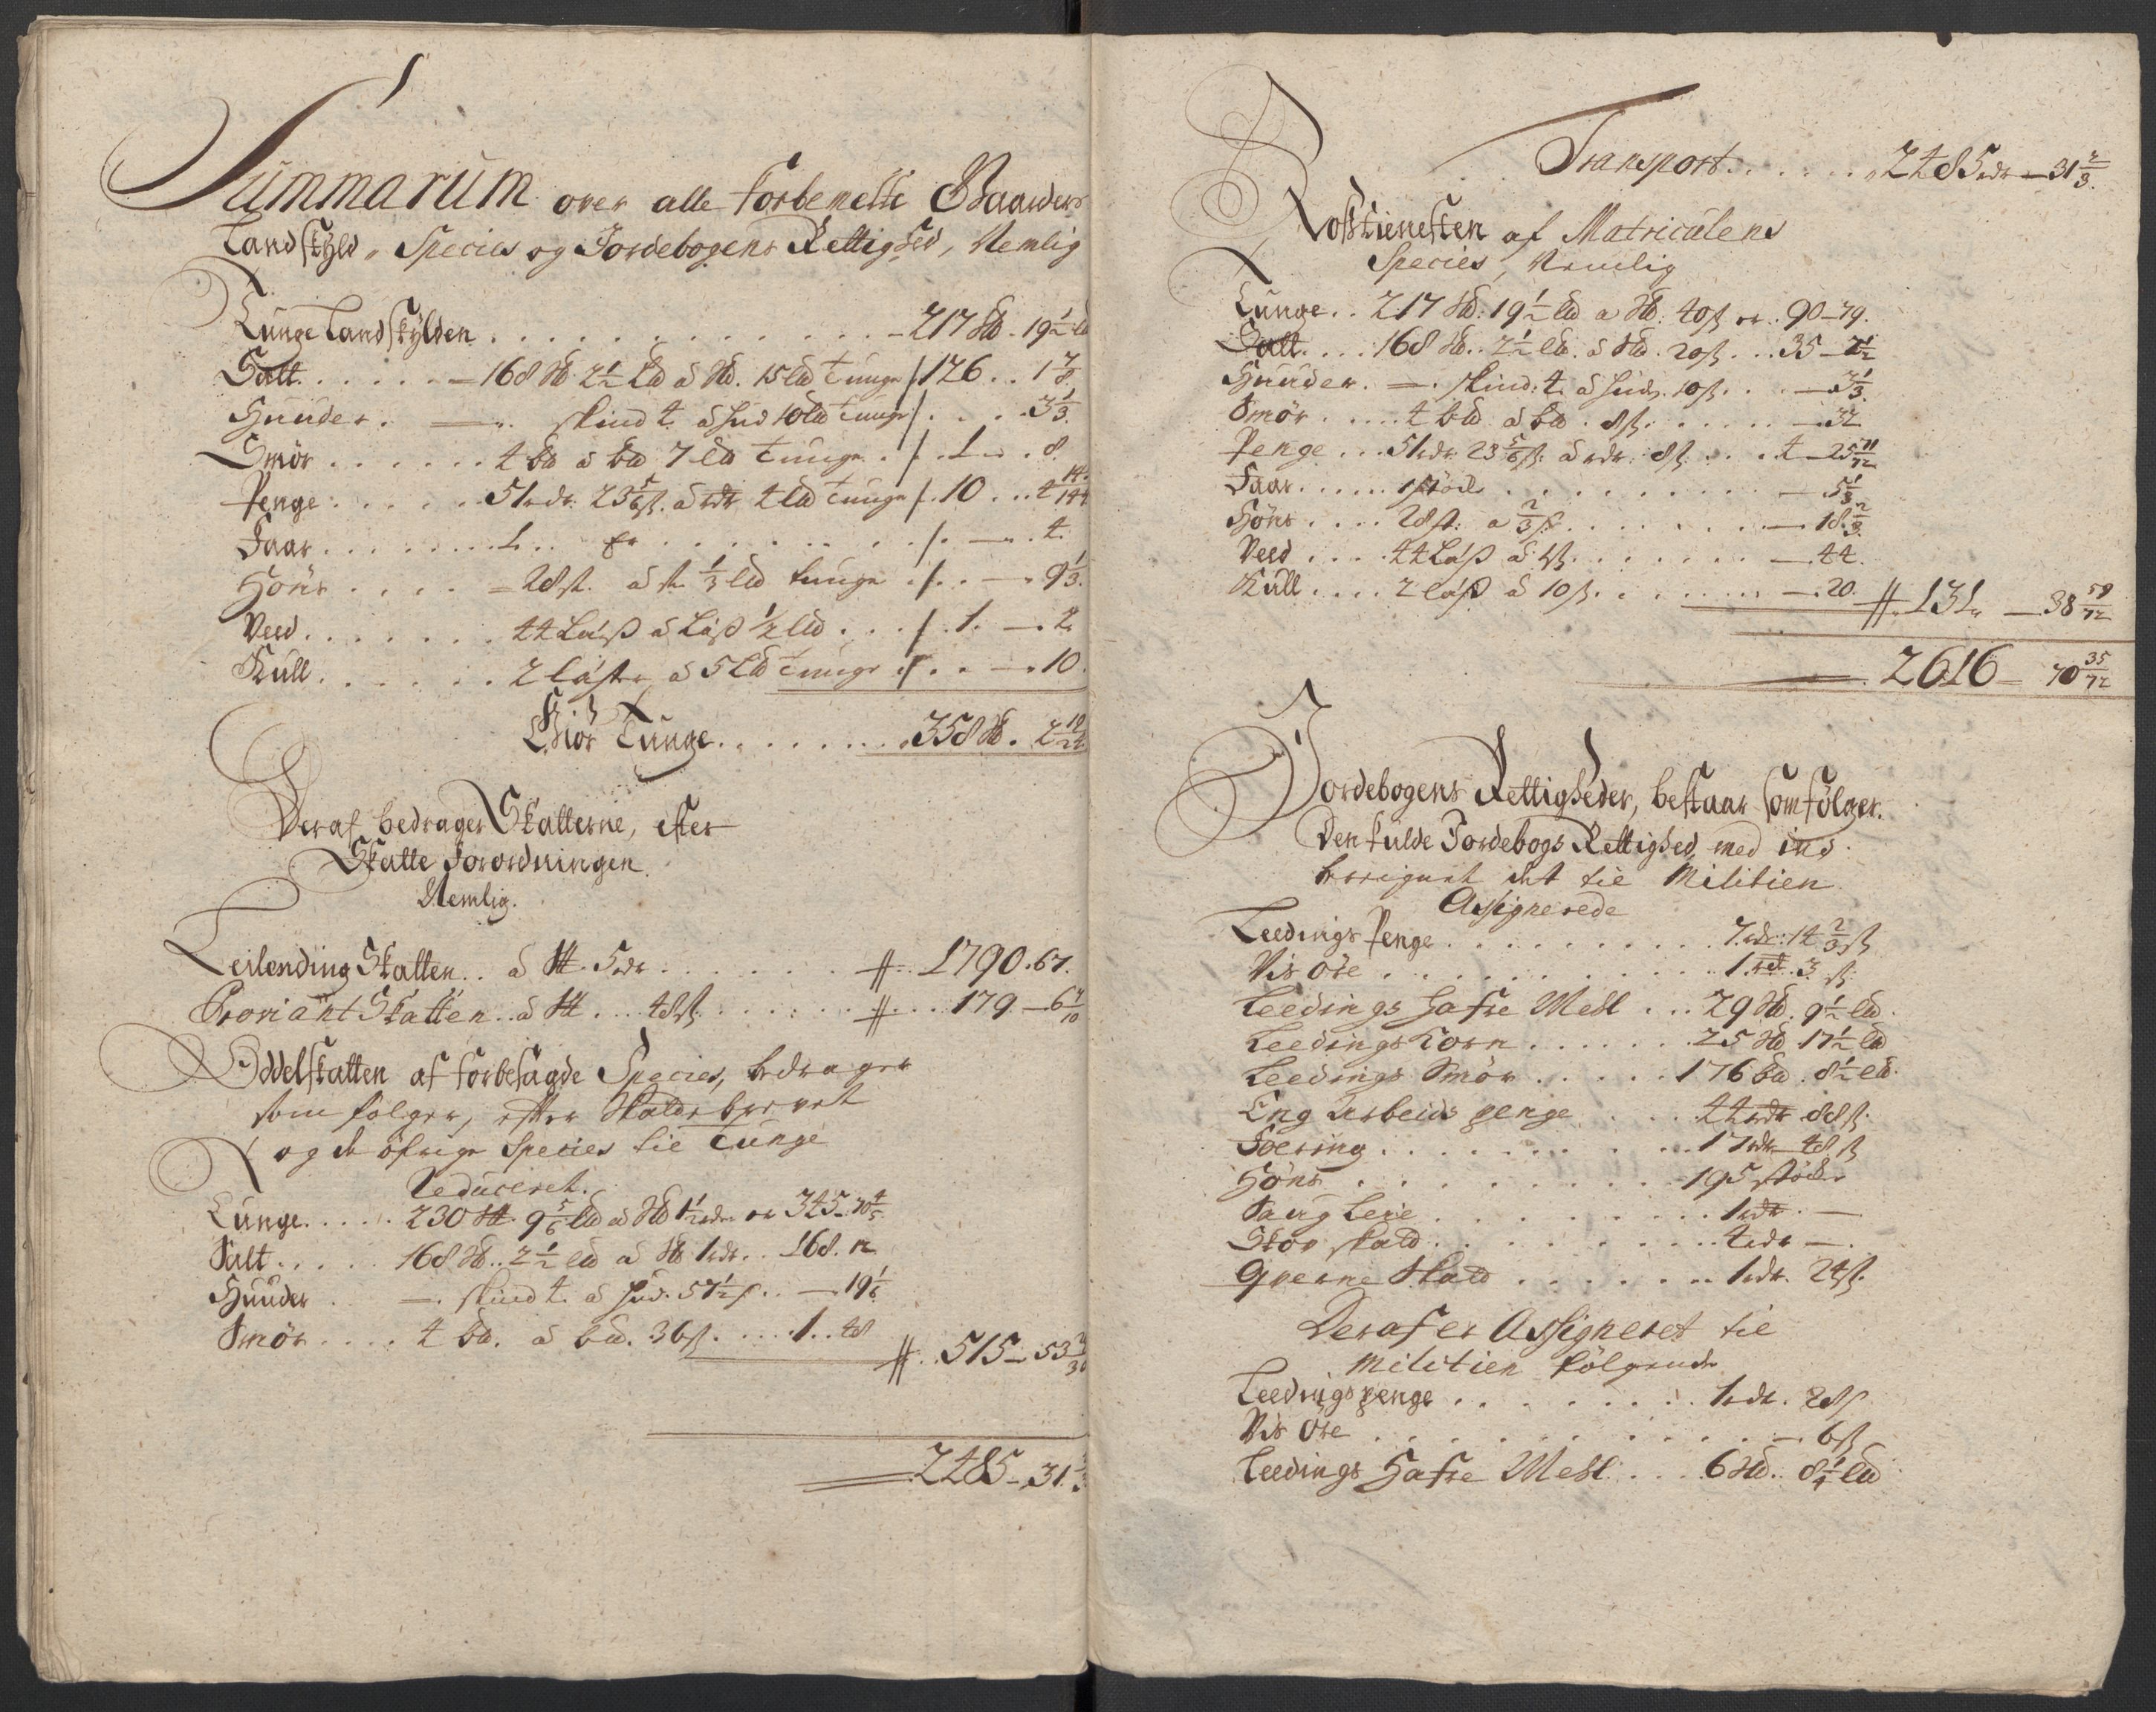 Summarum over alle forbemelte Gaarders
Landskyld, Species og Jordebogens Rettighed, Nemlig
Tunge Landskylden . . . . 217 Hd. 19½ Ld
Salt . . . . . 168 Hd 2½ Ld à Hd. 15 Ld Tunge /. 126 . . 1 7/8.
Huuder . — . skind 4. à Hud 10 Ld Tunge /. . . . 3 1/3.
Smör . . . . . . 4 bd à bd 7 Ld Tunge . /. . 1 . . 8.
Penge . . . . . 51 rdr. 23 5/6 ß. à rdr 4 Ld Tunge /. 10 . . . 4 14/144
Faar . . . . . . . 1 . . er . . . . . . . . /. — . 4.
Höns . . . . = 28 st. à st. 1/3 Ld tunge . /. . — . 9 1/3.
Veed . . . . . . 44 Læss à Læss ½ Ld . . . /. 1. — . 2.
Kull . . . . . . 2 læster à 5 Ld Tunge . /. . . — 10.
Giör Tunge . . . . . . . . 358 Hd. 2 19/24.
Deraf bedrager Skatterne, efter
Skatte Forordningen.
Nemlig.
Leilending Skatten . . à Hd. 5 rdr . . . . . . . # . . 1790 . 67.
Proviant Skatten . . à Hd . . . 48 ß. . . . . . . # . . . 179 — 6 7/10
Oddelskatten af forbesagde Species, bedrager
som fölger, efter Skattebrevet
og de öfrige Species til Tunge
Reduceret.
Tunge . . . . . 230 Hd. 9 5/6 Ld à Hd 1½ rdr er 345 . 70 4/5.
Salt . . . . . 168 Hd. . 2½ Ld à Hd 1 rdr. . . 168. 12
Huuder . — . skind 4. à Hud. 57½ ß. . — . 19 1/6
Smör . . . . 4 bd. à bd. 36 ß. . . . . 1 . . 48
# . . 515 — 53
2485 — 31.
Transport . . . . . . . 2485 rdr — 31 2/3.
Rosstienesten af Matriculens
Species, Nemlig
Tunge . . 217 Hd. 19½ Ld a Hd. 40 ß er . . 90 — 79.
Salt . . . . 168 Hd. . 2½ Ld. à Hd. 20 ß . . . 35 — 2½
Huuder . — . skind: 4. à Hud. 10 ß. . . — 3 1/3.
Smör . . . . 4 bd à bd . 8 ß. . . . . . — 32
Penge . . . 51 rdr. 23 5/6 ß. à rdr. 8 ß . . . 4 — 25 71/72
Faar . . . . . 1 stöck . . . . . . . . . — 5 1/3
Höns . . . . 28 st. a 2/3 ß . . . . . . . — 18 2/3.
Veed . . . . 44 Læss à 1 ß. . . . . . . — 44.
Kull . . . . 2 læss à 10 ß . . . . . . . — . 20. # . 131 — 38 59/72
2616 — 70 35/72
Jordebogens Rettigheder, bestaar som fölger.
Den fulde Jordebogs Rettighed, med ind
beregnet det til Militien
Assignerede
Leedings Penge . . . . . . . . . 7 rdr. 14 2/3 ß
Vis Öre . . . . . . . . . . . . . 1 rdr. 3 ß.
Leedings Hafre Mehl . . . 29 Hd. 9½ Ld.
Leedings Korn . . . . . . 25 Hd 17½ Ld
Leedings Smör . . . . . 176 bd . 8½ Ld.
Eng arbeids penge . . . . 44 rdr 88 ß.
Foering . . . . . . . . . . 17 rdr 48 ß
Höns . . . . . . . . . . 195 stöcke
Saug Leie . . . . . . . . 1 rdr. —
Skov skatt . . . . . . . . . 4 rdr — .
Qverne Skatt . . . . . . . 1 rdr. 24 ß.
Deraf er Assigneret til
Militien fölgende
Leedings penge . . . . . . . . 1 rdr. 28 ß
Vis Öre . . . . . . . . . . . . — 6 ß
Leedings Hafre Mehl . . . 6 Hd . . 8¼ Ld